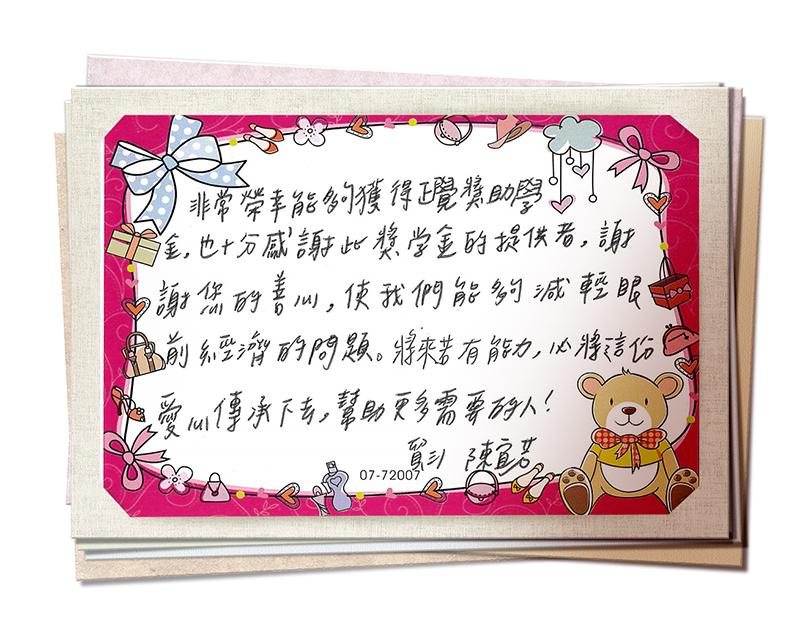 非常榮幸能夠獲得正覺獎助學
金,也十分感謝此獎学金的提供者,謝
謝您的善心,使我們能夠減輕眼
前經濟的問題。將來若有能力,必將這份
愛心傳承下去,幫助更多需要的人!
陳宜芳
07-72007